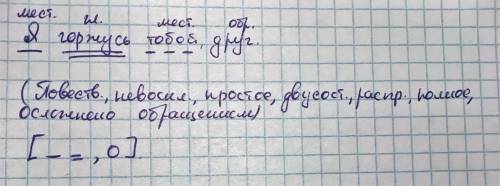 мест. гл. мест. обр.
Я горжусь тобой, друг.
(Повеств., невоскл., простое, двусост., распр., полное,
осложнено обращением)
[— =, О].